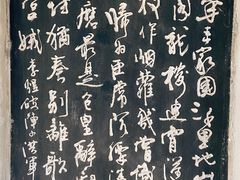 年来家國三千里地山
閣龍樓連霄漢
枝作烟蘿幾曾識
歸為臣虜沈腰潘
磨最是倉皇辭廟
坊猶奏別離歌
宮娥 李煜破陣子 洪軍